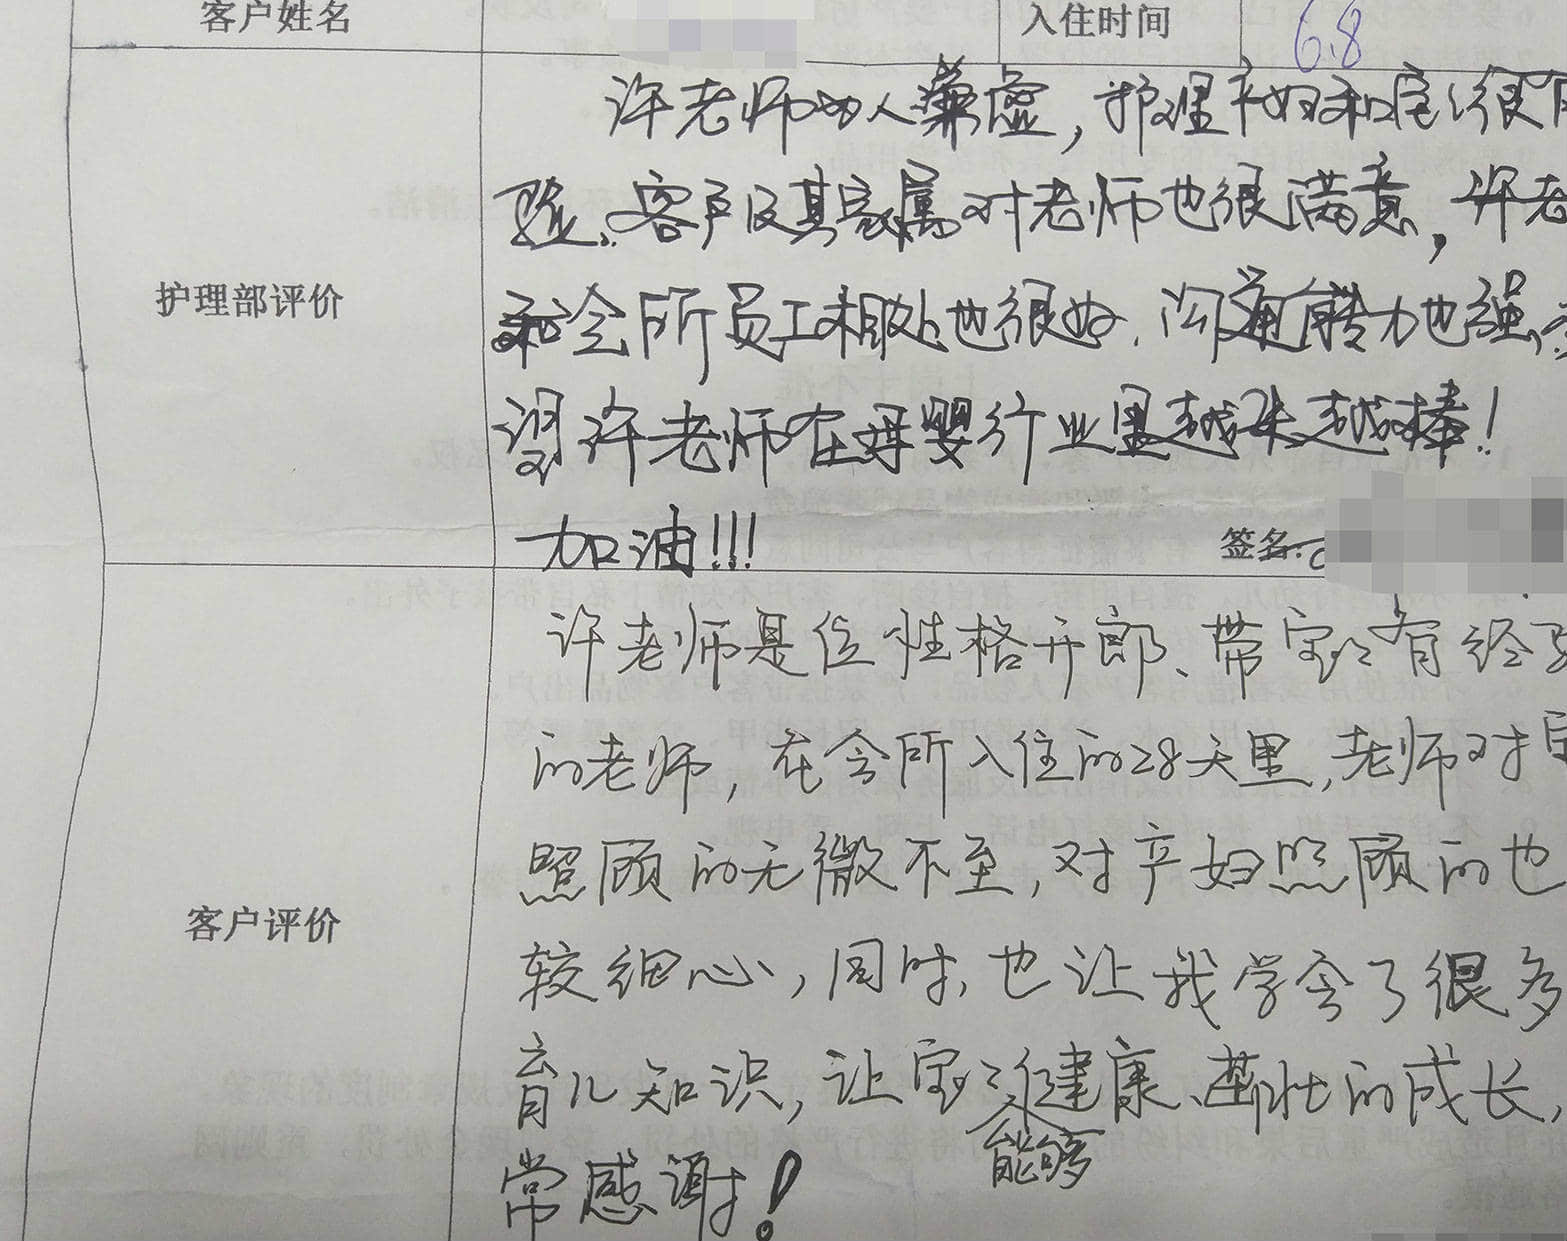 客户姓名 入住时间 6.8
许老师为人兼虚，护理产妇和宝宝很有
验、客户及其家属对老师也很满意，许老
护理部评价
和会所员工相处也很好、沟通能力也强、
望许老师在母婴行业里越来越棒！
加油!!!
签名：
许老师是位性格开郎、带宝宝有经验
的老师，在会所入住的28天里，老师对宝
照顾的无微不至，对产妇照顾的也
客户评价
较细心，同时，也让我学会了很多
育儿知识，让宝宝能够健康、茁壮的成长，
常感谢！